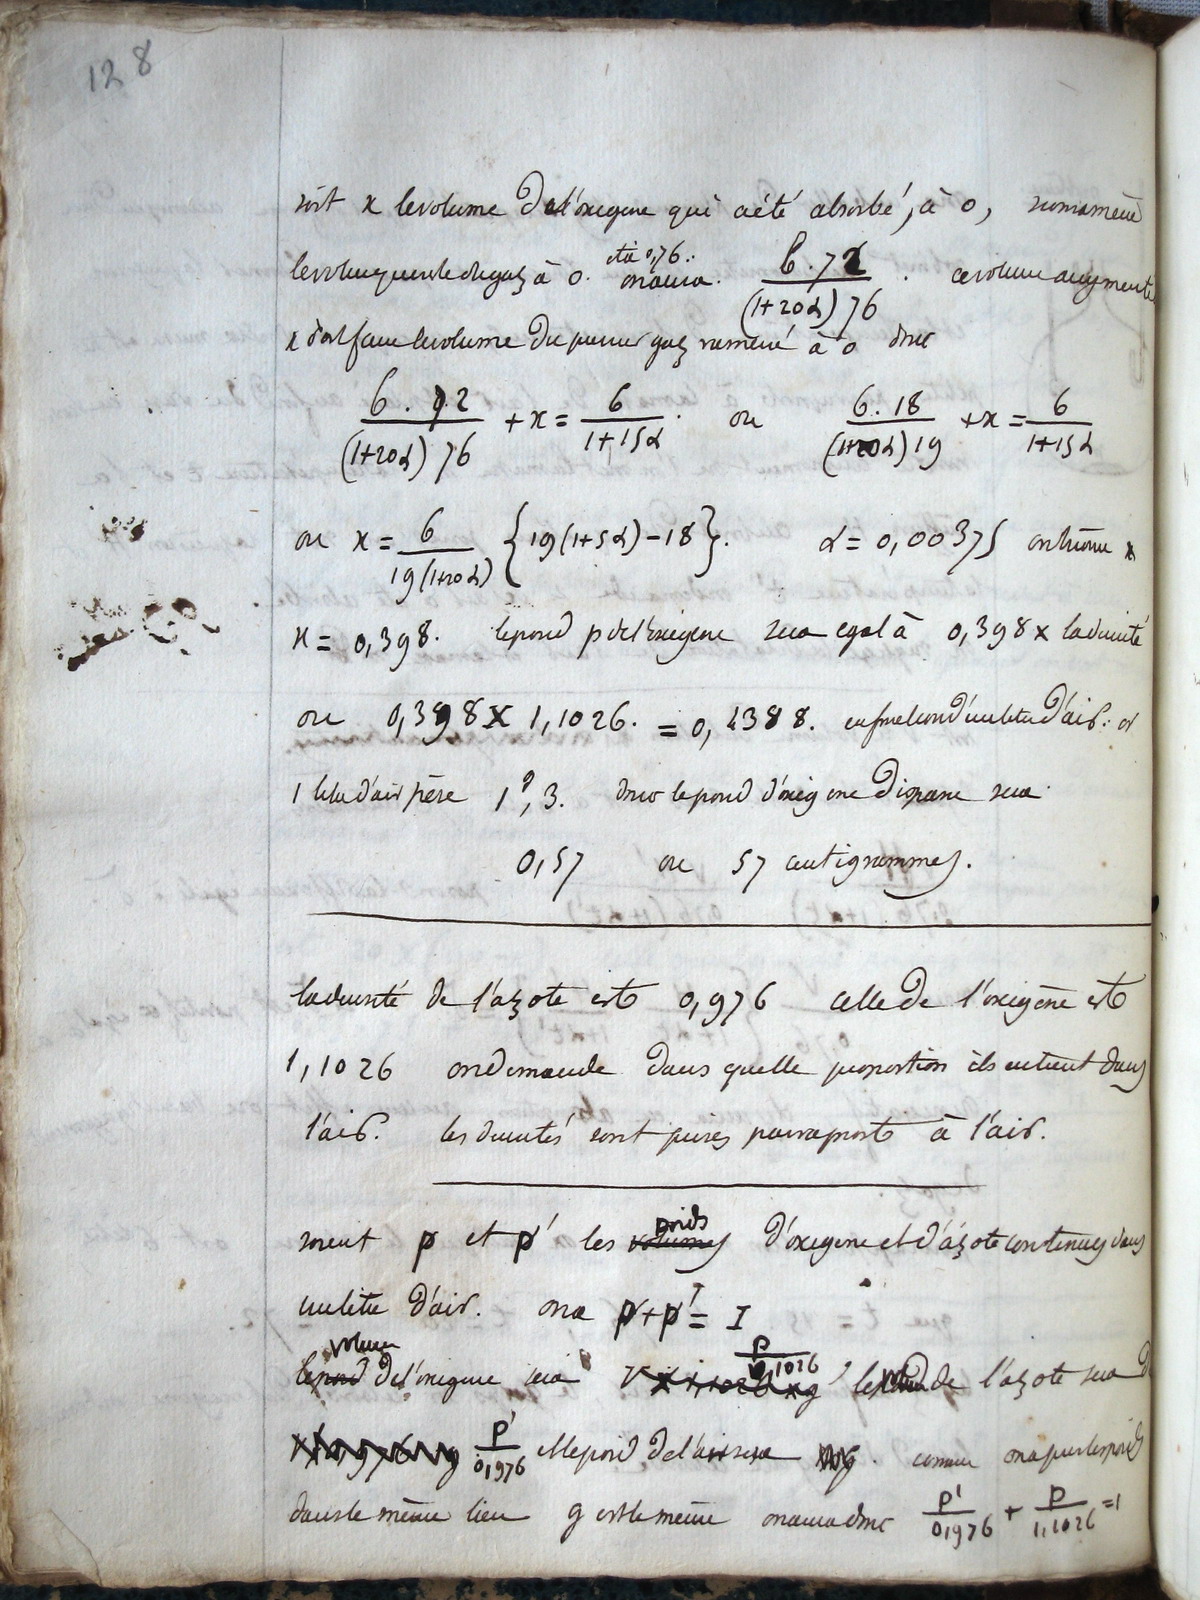 128
soit x le volume de l'oxigene qui a été absorbé, à 0, si on ramène
le volume de gaz à 0. et à 0,76. on aura. 6.72/((1+20α)76) . ce volume augmenté
x doit faire le volume du premier gaz ramené à 0 donc
6.72/((1+20α)76) + x = 6/(1+15α) . ou 6.18/((1+20α)19) + x = 6/(1+15α)
ou x = 6/(19(1+20α)) {19(1+5α)-18}. α = 0,00375 on trouve x
x = 0,398. le poid p de l'oxigene sera egal à 0,398 x la densité
ou 0,398 X 1,1026. = 0,4388. d'un litre d'air. or
1 litre d'air pèse 1g,3. donc le poid d'oxigene disparu sera
0,57 ou 57 centigrammes.
la densité de l'azote est 0,976 celle de l'oxigène est
1,1026 on demande dans quelle proportion ils entrent dans
l'air. les densités sont prises par raport à l'air.
soient p et p' les volumes poids d'oxigene et d'azote contenus dans
un litre d'air. on a p+p' = 1
le poid volume de l'oxigene sera p/1,1026 le volume de l'azote sera de
p'/0,976 et le poid de l'air sera comme on a pris les poids
dans le même lieu g est le même on aura donc p'/0,976 + p/1,1026 = 1